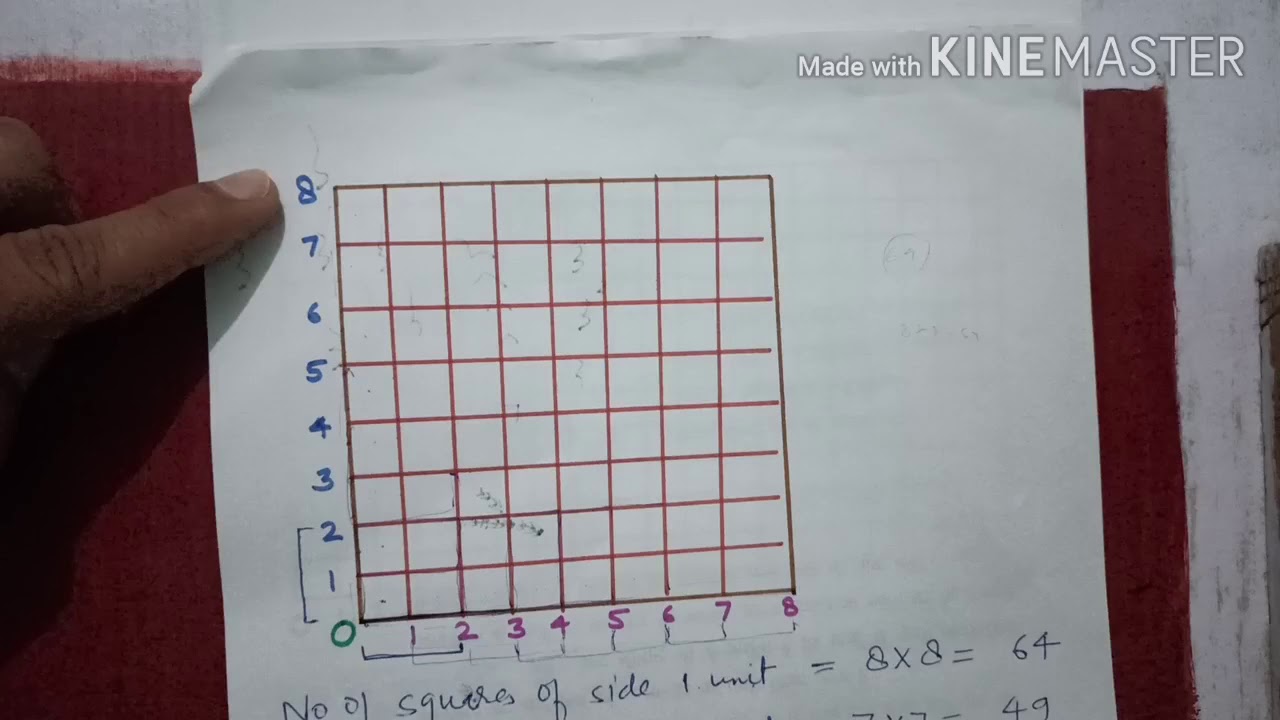 Made with KINEMASTER
8
7
6
5
4
3
2
1
0 1 2 3 4 5 6 7 8
No of squares of side 1 unit = 8×8 = 64
7×7 = 49